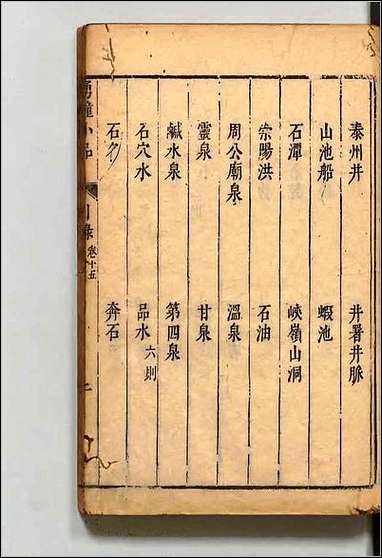 泰州井 井署井脈
山池船 蝦池
石潭 峽嶺山洞
崇陽洪 石油
周公廟泉 溫泉
靈泉 甘泉
鹹水泉 第四泉
石穴水 品水六則
石 奔石
湧幢小品 目錄 卷十五